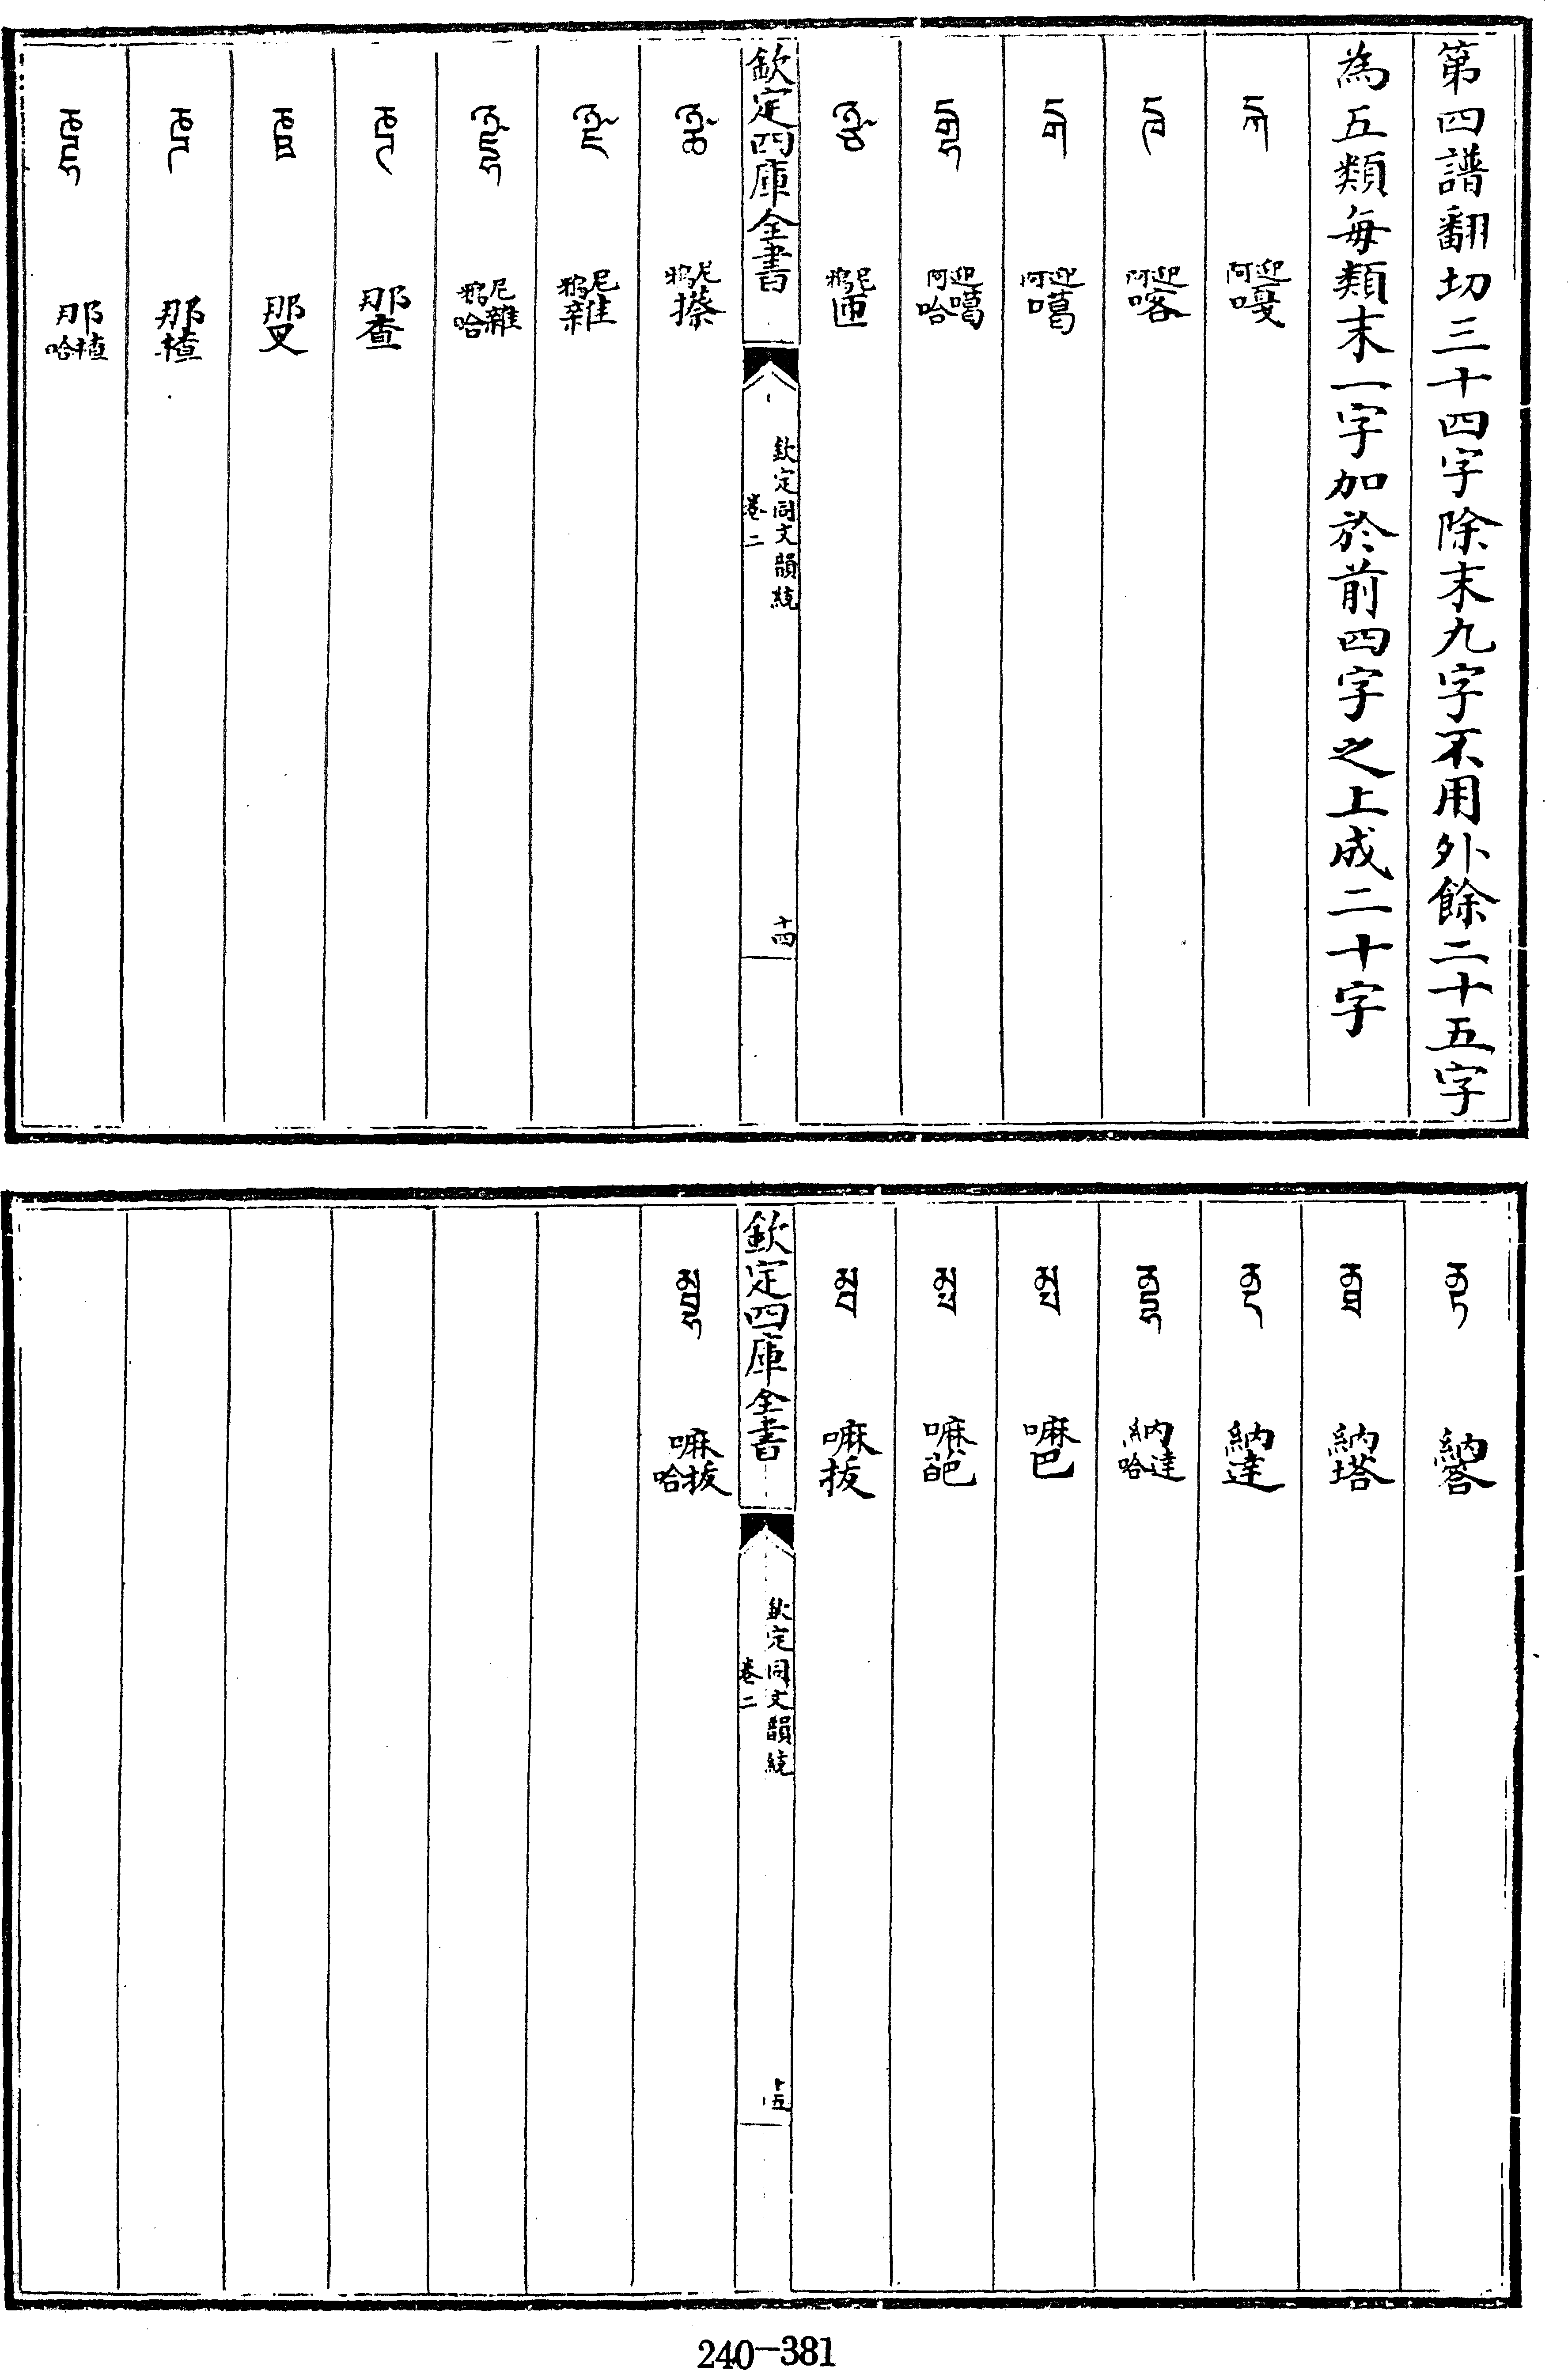 第四譜翻切三十四字除末九字不用外餘二十五字
為五類每類末一字加於前四字之上成二十字
ངྐ 迎阿嘎
ངྑ 迎阿喀
ངྒ 迎阿噶
ངྒྷ 迎阿噶哈
ཉྩ 尼鴉匝
欽定四庫全書
欽定同文韻統
卷二
十四
ཉྪ 尼鴉攃
ཉྫ 尼鴉雜
ཉྫྷ 尼鴉雜哈
ཎྚ 那查
ཎྛ 那叉
ཎྜ 那楂
ཎྜྷ 那楂哈
ནྟ 納答
ནྠ 納塔
ནྡ 納達
ནྡྷ 納達哈
མྤ 嘛巴
མྥ 嘛葩
མྦ 嘛拔
欽定四庫全書
欽定同文韻統
卷二
十五
མྦྷ 嘛拔哈
240-381